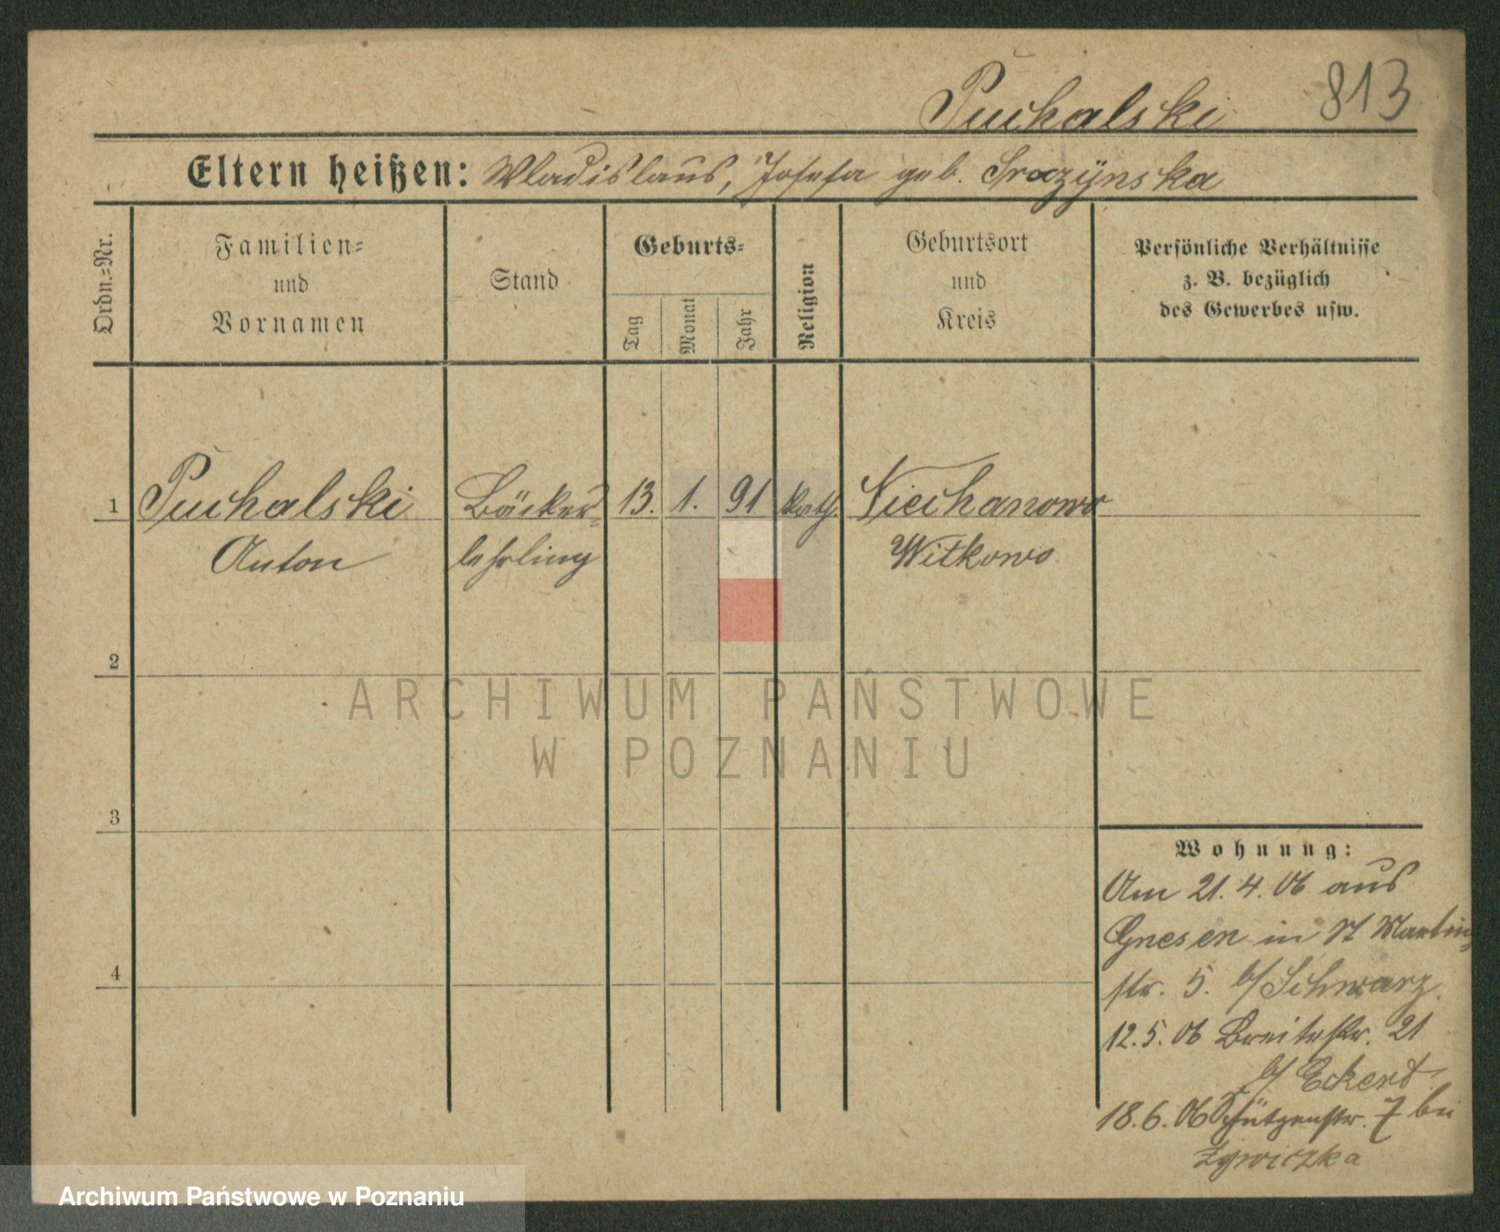 Puchalski 813
Eltern heißen: Wladislaus, Josefa geb.
Ordn.=Nr.
Familien=
und
Vornamen
Stand
Geburts=
Tag
Monat
Jahr
Religion
Geburtsort
und
Kreis
Persönliche Verhältnisse
z. B. bezüglich
des Gewerbes usw.
1 Puchalski Bäcker= 13. 1. 91 kath. Niechanowo
Anton lehrling Witkowo
2
3
4
Wohnung:
Am 21.4.06 aus
Gnesen in St Martin
str. 5. b/ Schwarz.
12.5.06 Breitestr. 21
b/ Eckert
18.6.06 Schützenstr. 7 bei
ARCHIWUM PAŃSTWOWE
W POZNANIU
Archiwum Państwowe w Poznaniu